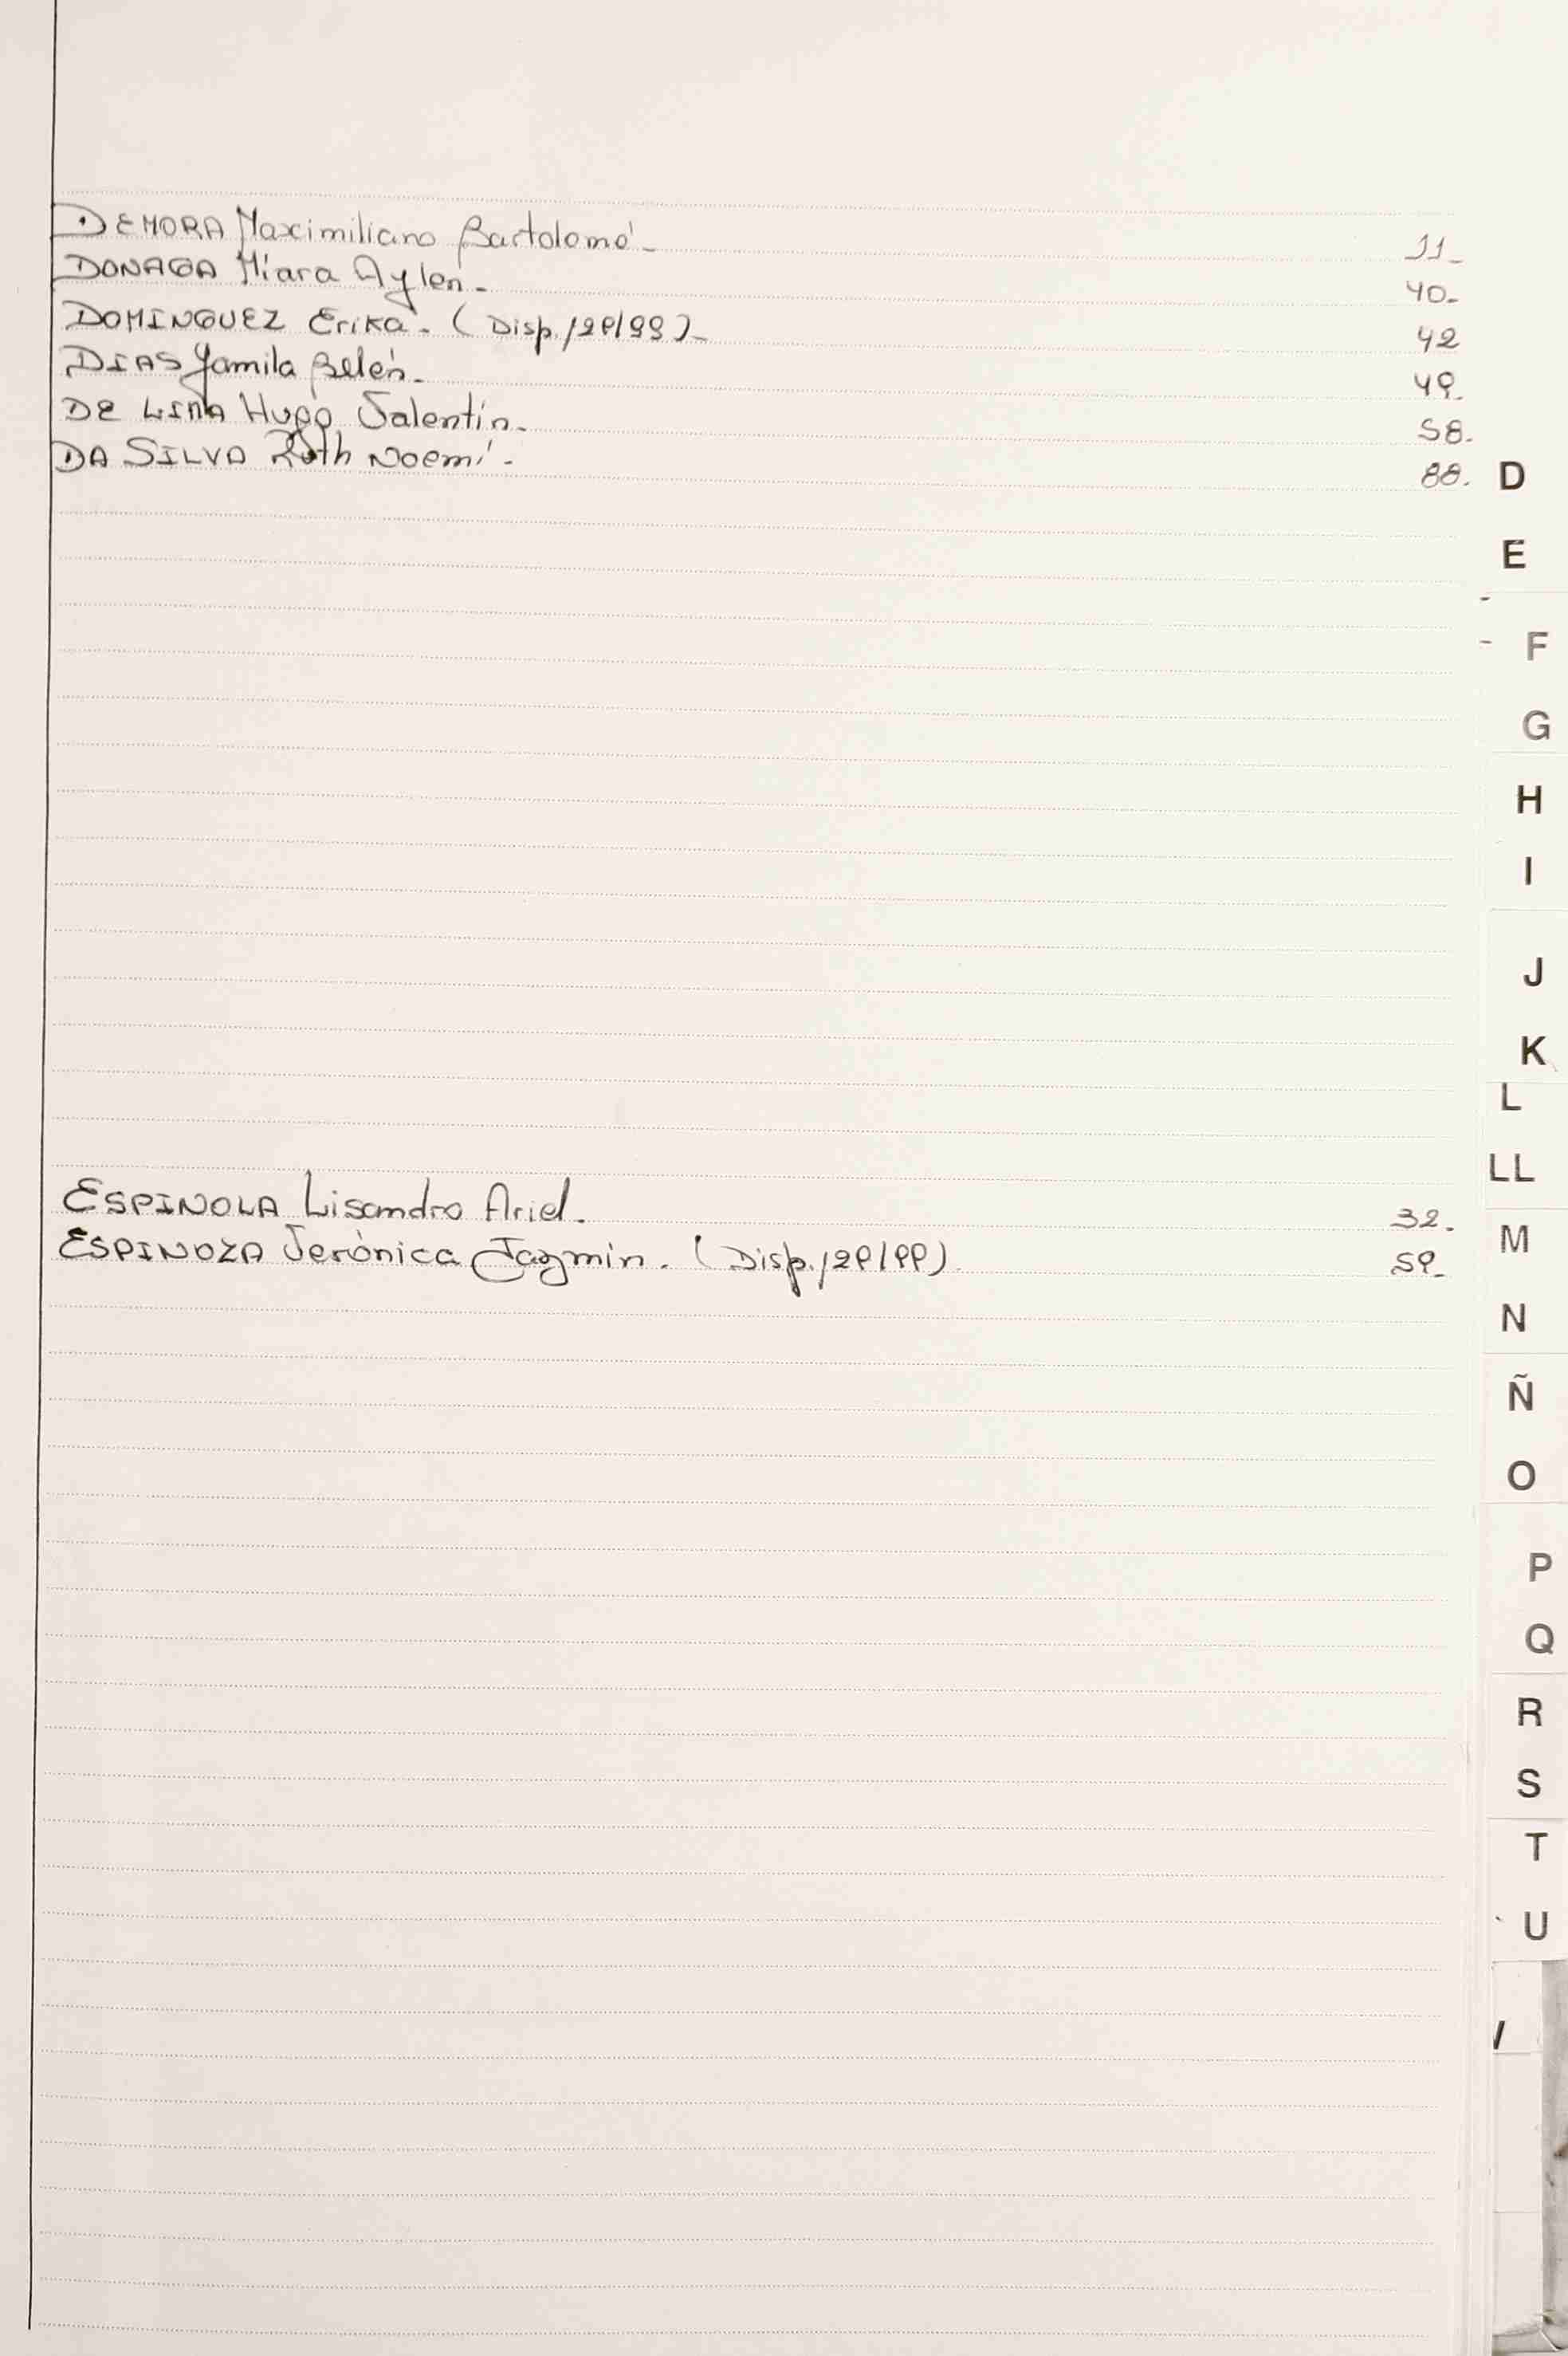 DEMORA Maximiliano Bartolomé - 11-
DONAGA Miara Aylén - 40-
DOMINGUEZ Erika - (Disp. 129/99)- 42
DIAS Yamila Belén - 49-
DE LIMA Hugo Valentín - 58-
DA SILVA Ruth Noemí - 88.
D
E
F
G
H
I
J
K
L
LL
ESPINOLA Lisandro Ariel. 32.
ESPINOZA Verónica Jazmín. (Disp. 129/99) 59-
M
N
Ñ
O
P
Q
R
S
T
U